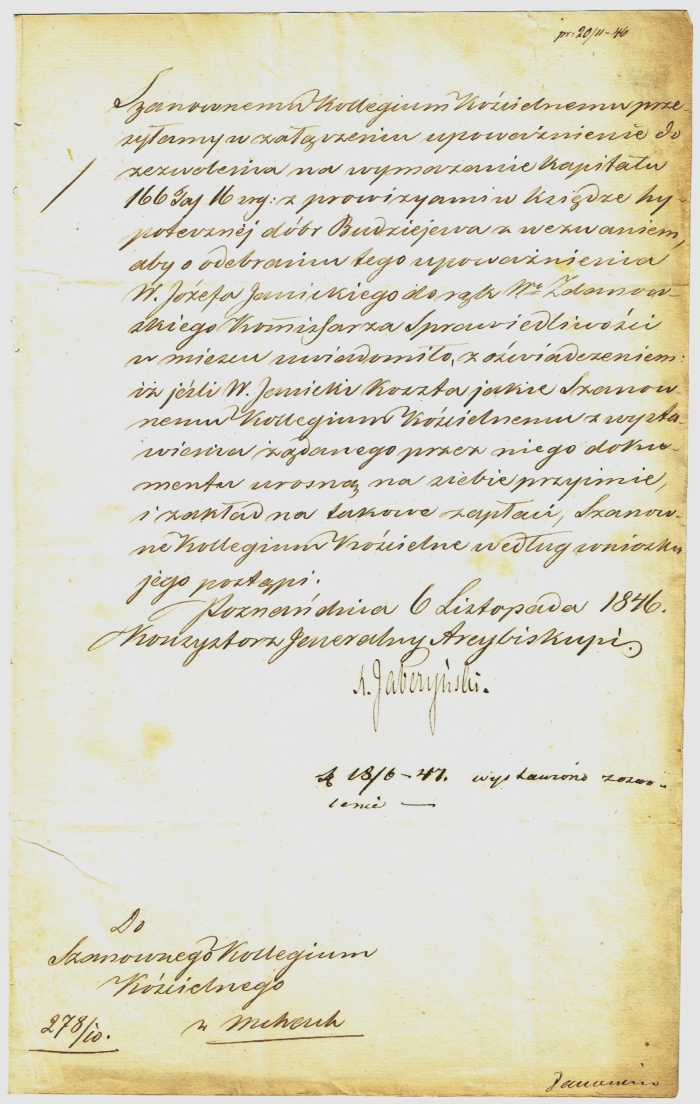 pr: 20/11-46
Szanownemu Kollegium Kościelnemu prze-
syłamy w załączeniu upoważnienie do
zezwolenia na wymazanie kapitału
166 Tal 16 : z prowizyami w księdze hy-
potecznéj dóbr Budziejewa z wezwaniem,
aby o odebraniu tego upoważnienia
W. Józefa Janickiego do rąk Wo Zdanow-
skiego Kommissarza Sprawiedliwości
w miescu uwiadomiło, z oświadczeniem:
iż jeśli W. Janicki koszta jakie Szanow-
nemu Kollegium Kościelnemu z wysta-
wienia żądanego przez niego doku-
mentu urosną na siebie przyimie,
i zakład na takowe zapłaci, Szanow-
ne Kollegium Kościelne według wniosku
jego postąpi.
Poznań dnia 6 Listopada 1846.
Konsystorz Jeneralny Arcybiskupi.
A. Jabczyński.
18/6-47. wystawiono zezwo-
lenie —
Do
Szanownego Kollegium
Kościelnego
278/10. w